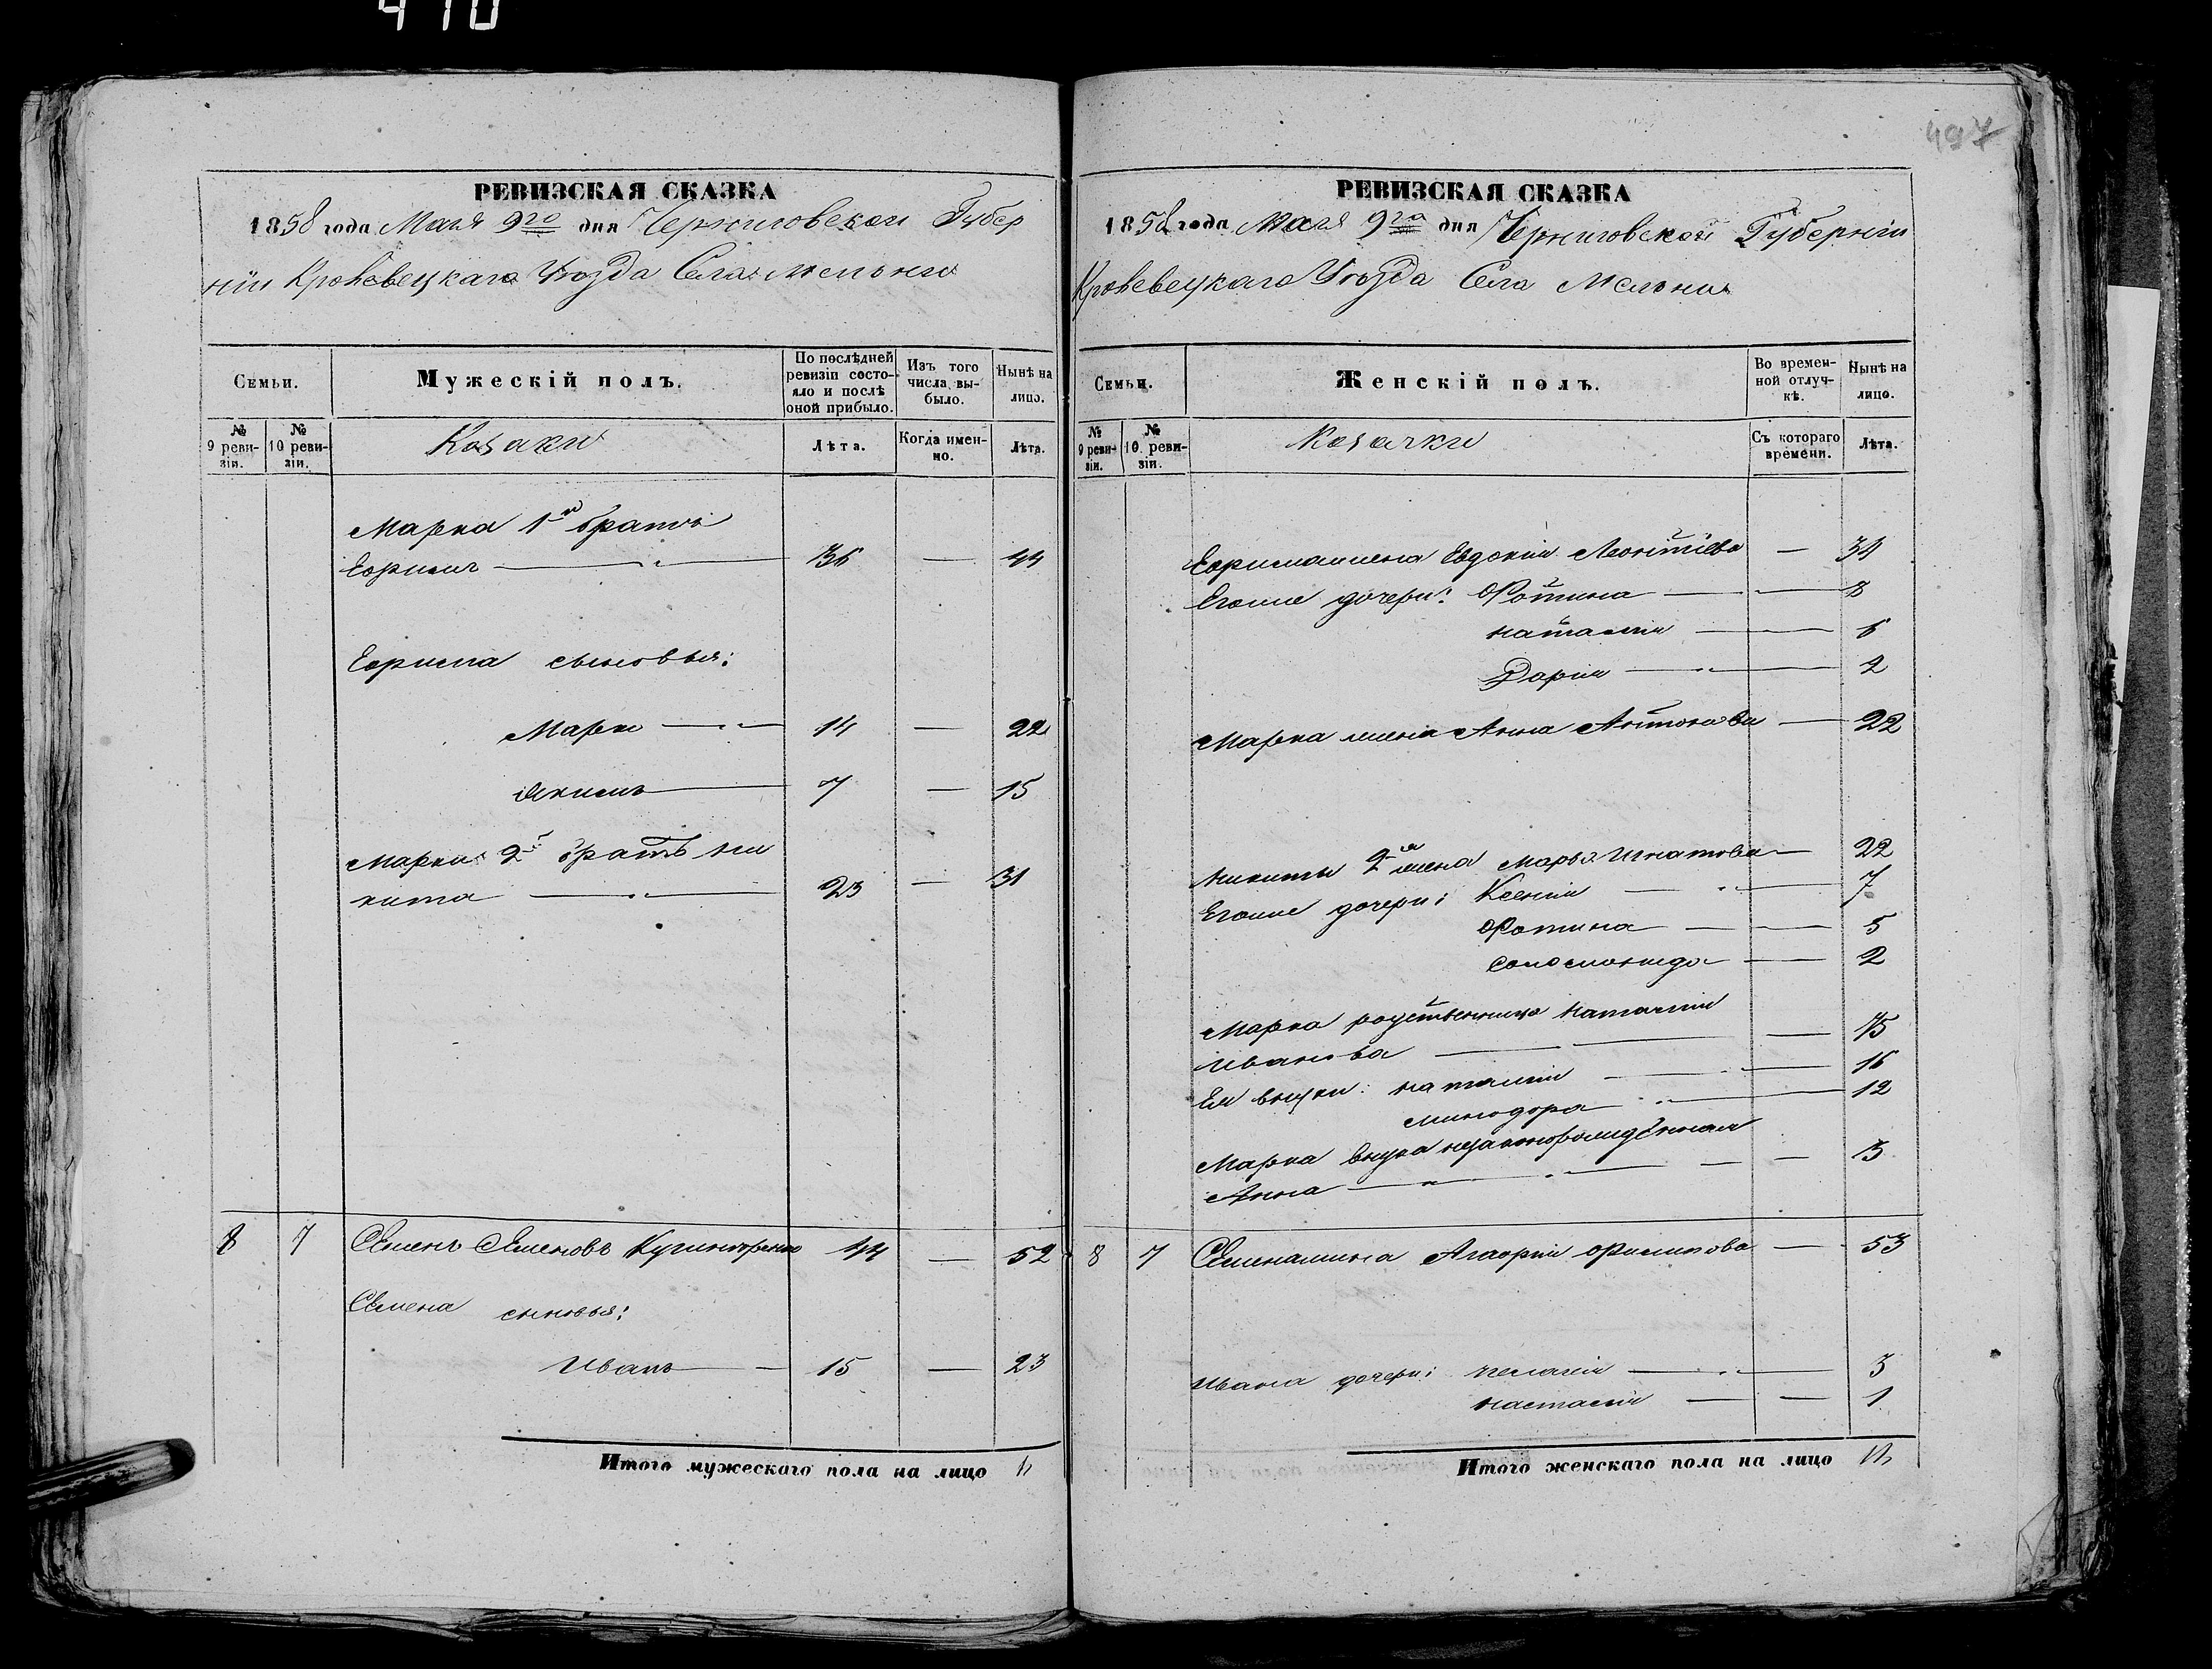 410
РЕВИЗСКАЯ СКАЗКА
1858 года Мая 9го дня Черниговской Губер
ніи Кролевецкаго Уѣзда Села Мельни
Семьи.
Мужескій полъ.
По послѣдней ревизіи состояло и послѣ оной прибыло.
Изъ того числа выбыло.
Нынѣ на лицо.
№ 9 ревизіи.
№ 10 ревизіи.
Козаки
Лѣта.
Когда именно.
Лѣта.
Марка 1й братъ
Ефимъ — 36 — 44
Ефима сыновья:
Марко — 14 — 22
Якимъ — 7 — 15
Марка 2й братъ Ни
кита — 23 — 31
8 7 Семенъ Семеновъ 44 — 52
Семена сыновья:
Иванъ — 15 — 23
Итого мужескаго пола на лицо
497
РЕВИЗСКАЯ СКАЗКА
1858 года Мая 9го дня Черниговской Губерніи
Кролевецкаго Уѣзда Села Мельни
Семьи.
Женскій полъ.
Во временной отлучкѣ.
Нынѣ на лицо.
№ 9 ревизіи.
№ 10 ревизіи.
Козачки
Съ котораго времени.
Лѣта.
Ефима жена Евдокія Леонтіева — 34
Егоже дочери: Фотина — 8
Наталія — 6
Дарія — 2
Марка жена Анна Антонова — 22
Никиты 2я жена Марья Игнатова — 22
Егоже дочери: Ксенія — 7
Фотина — 5
Соломонида — 2
Марка родственница Наталія
Иванова — 75
Ея внуки: Наталія — 16
Минодора — 12
Марка внука незаконорожденная
Анна — 3
8 7 Семена жена Агафія Филипова — 53
Ивана дочери: Пелагія — 3
Настасія — 1
Итого женскаго пола на лицо